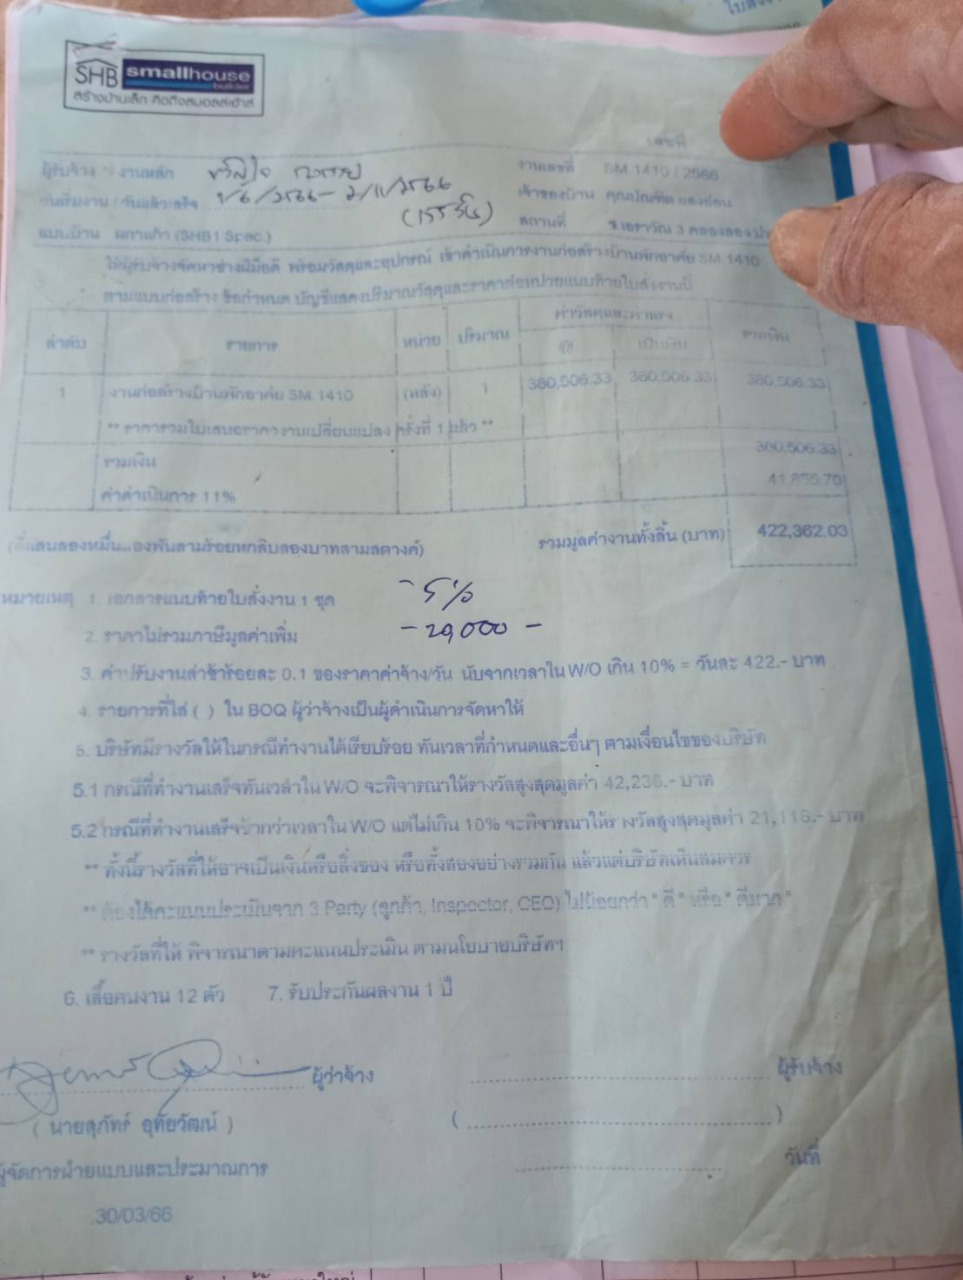 SHB smallhouse builder
สร้างบ้านเล็ก คิดถึงสมอลล์เฮ้าส์
เลขที่
ผู้รับจ้าง งานหลัก
งานเลขที่ SM.1410 / 2566
วันเริ่มงาน / วันแล้วเสร็จ 1/6/2566 - 2/11/2566
(155 วัน)
เจ้าของบ้าน คุณบัณฑิต
แบบบ้าน ผกาแก้ว (SHB1 Spec.)
สถานที่ ซ.เอราวัณ 3 คลองสอง
ให้ผู้รับจ้างจัดหาช่างฝีมือดี พร้อมวัสดุและอุปกรณ์ เข้าดำเนินการงานก่อสร้างบ้านพักอาศัย SM.1410
ตามแบบก่อสร้าง ข้อกำหนด บัญชีแสดงปริมาณวัสดุและราคาต่อหน่วยแนบท้ายใบสั่งงานนี้
ลำดับ รายการ หน่วย ปริมาณ ค่าวัสดุและค่าแรง รวมเงิน
@ เป็นเงิน
1 งานก่อสร้างบ้านพักอาศัย SM.1410 (หลัง) 1 380,506.33 380,506.33 380,506.33
** ราคารวมใบเสนอราคางานเปลี่ยนแปลง ครั้งที่ 1 แล้ว **
รวมเงิน 380,506.33
ค่าดำเนินการ 11% 41,855.70
(สี่แสนสองหมื่น...องพันสามร้อยหกสิบสองบาทสามสตางค์) รวมมูลค่างานทั้งสิ้น (บาท) 422,362.03
หมายเหตุ 1. เอกสารแนบท้ายใบสั่งงาน 1 ชุด
- 5%
2. ราคาไม่รวมภาษีมูลค่าเพิ่ม
- 29,000 -
3. ค่าปรับงานล่าช้าร้อยละ 0.1 ของราคาค่าจ้าง/วัน นับจากเวลาใน W/O เกิน 10% = วันละ 422.- บาท
4. รายการที่ใส่ ( ) ใน BOQ ผู้ว่าจ้างเป็นผู้ดำเนินการจัดหาให้
5. บริษัทมีรางวัลให้ในกรณีทำงานได้เรียบร้อย ทันเวลาที่กำหนดและอื่นๆ ตามเงื่อนไขของบริษัท
5.1 กรณีที่ทำงานเสร็จทันเวลาใน W/O จะพิจารณาให้รางวัลสูงสุดมูลค่า 42,236.- บาท
5.2 กรณีที่ทำงานเสร็จช้ากว่าเวลาใน W/O แต่ไม่เกิน 10% จะพิจารณาให้รางวัลสูงสุดมูลค่า 21,118.- บาท
** ทั้งนี้รางวัลที่ให้อาจเป็นเงินหรือสิ่งของ หรือทั้งสองอย่างรวมกัน แล้วแต่บริษัทเห็นสมควร
** ต้องได้คะแนนประเมินจาก 3 Party (ลูกค้า, Inspector, CEO) ไม่น้อยกว่า " ดี " หรือ " ดีมาก "
** รางวัลที่ให้ พิจารณาตามคะแนนประเมิน ตามนโยบายบริษัทฯ
6. เสื้อคนงาน 12 ตัว 7. รับประกันผลงาน 1 ปี
ผู้ว่าจ้าง ผู้รับจ้าง
( นายสุภัทร์ อุทัยวัฒน์ ) ( )
ผู้จัดการฝ่ายแบบและประมาณการ วันที่
30/03/66